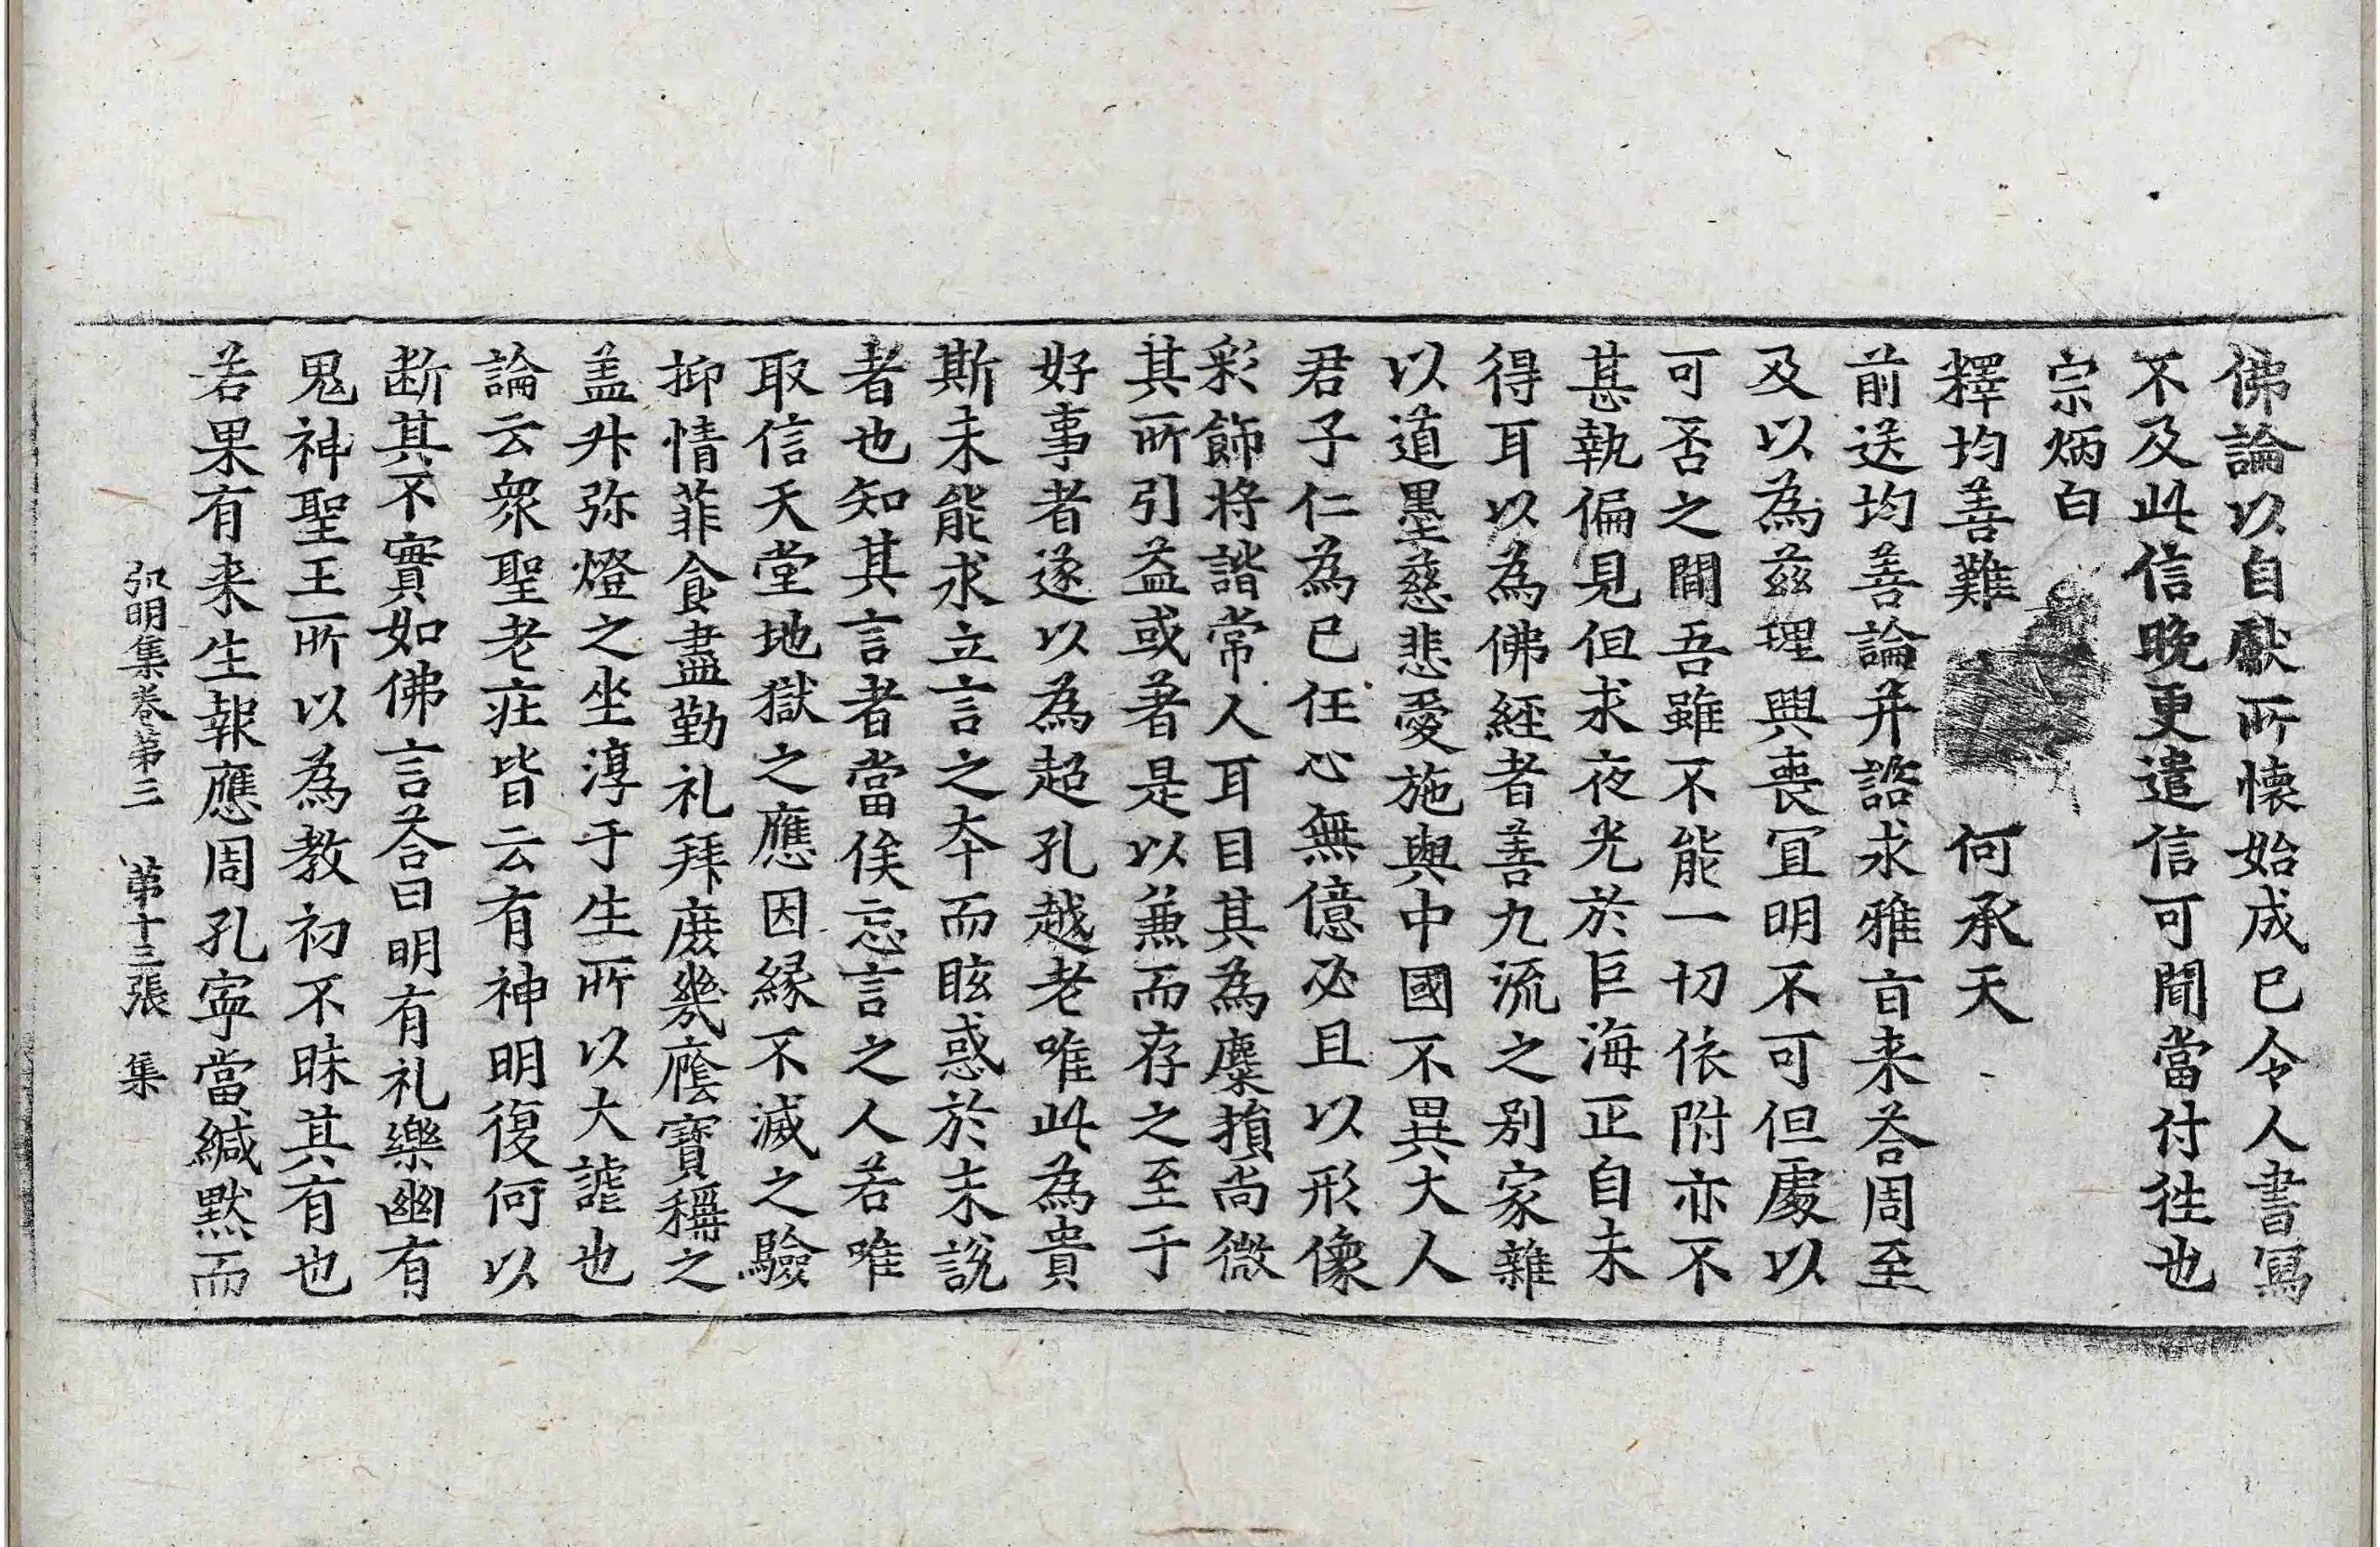 佛論以自獻所懷始成已令人書寫
不及此信晚更遣信可聞當付往也
宗炳白
釋均善難 何承天
前送均善論并諮求雅旨来荅周至
及以為茲理興喪冝明不可但處以
可否之間吾雖不能一切依附亦不
甚執偏見但求夜光於巨海正自未
得耳以為佛經者善九流之别家雜
以道墨慈悲愛施與中國不異大人
君子仁為己任心無億必且以形像
彩飾将諧常人耳目其為麋損尚微
其所引益或著是以兼而存之至于
好事者遂以為超孔越老唯此為貴
斯未能求立言之本而眩惑於末説
者也知其言者當俟忘言之人若唯
取信天堂地獄之應因緣不滅之驗
抑情菲食盡勤礼拜庶幾廕寶稱之
盖升弥燈之坐淳于生所以大謔也
論云衆聖老莊皆云有神明復何以
断其不實如佛言荅曰明有礼樂幽有
鬼神聖王所以為教初不昧其有也
若果有来生報應周孔寜當緘默而
弘明集卷第三 第十三張 集